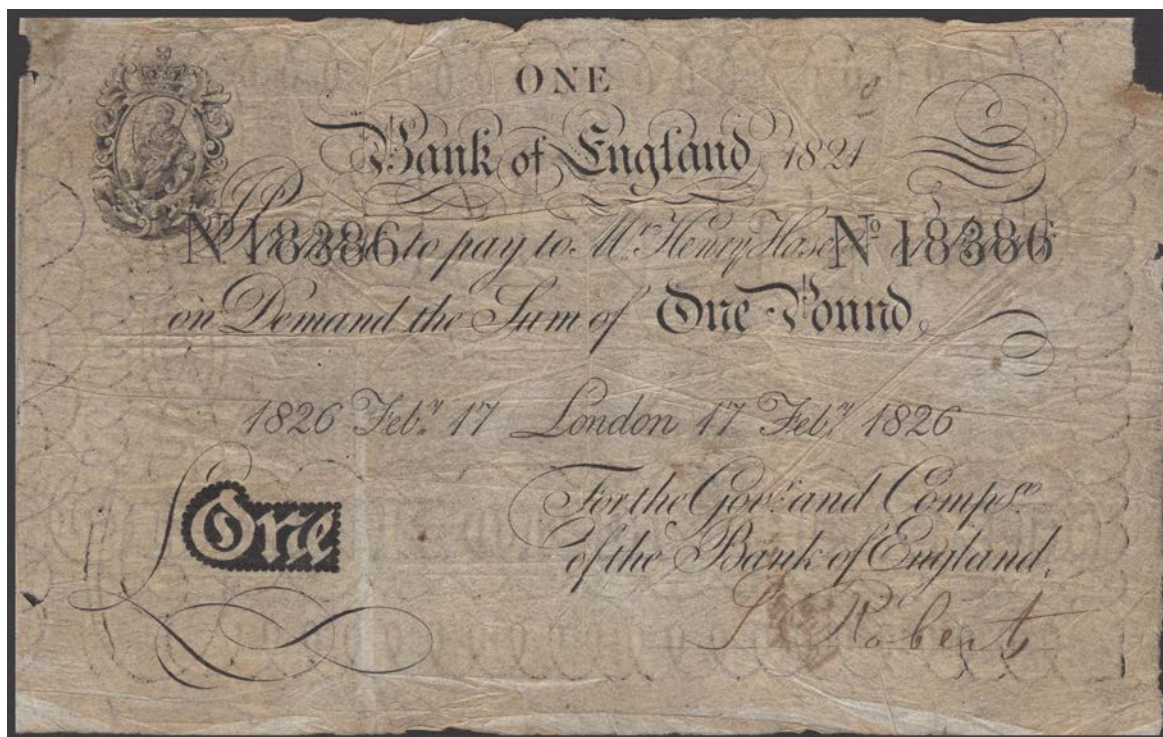 ONE
Bank of England 1821
Nº 18386 to pay to Mr. Henry Hase Nº 18386
on Demand the Sum of One Pound,
1826 Feb.ry 17 London 17 Feb.ry 1826
For the Gov.r and Comp.a
of the Bank of England,
£ One
Roberts